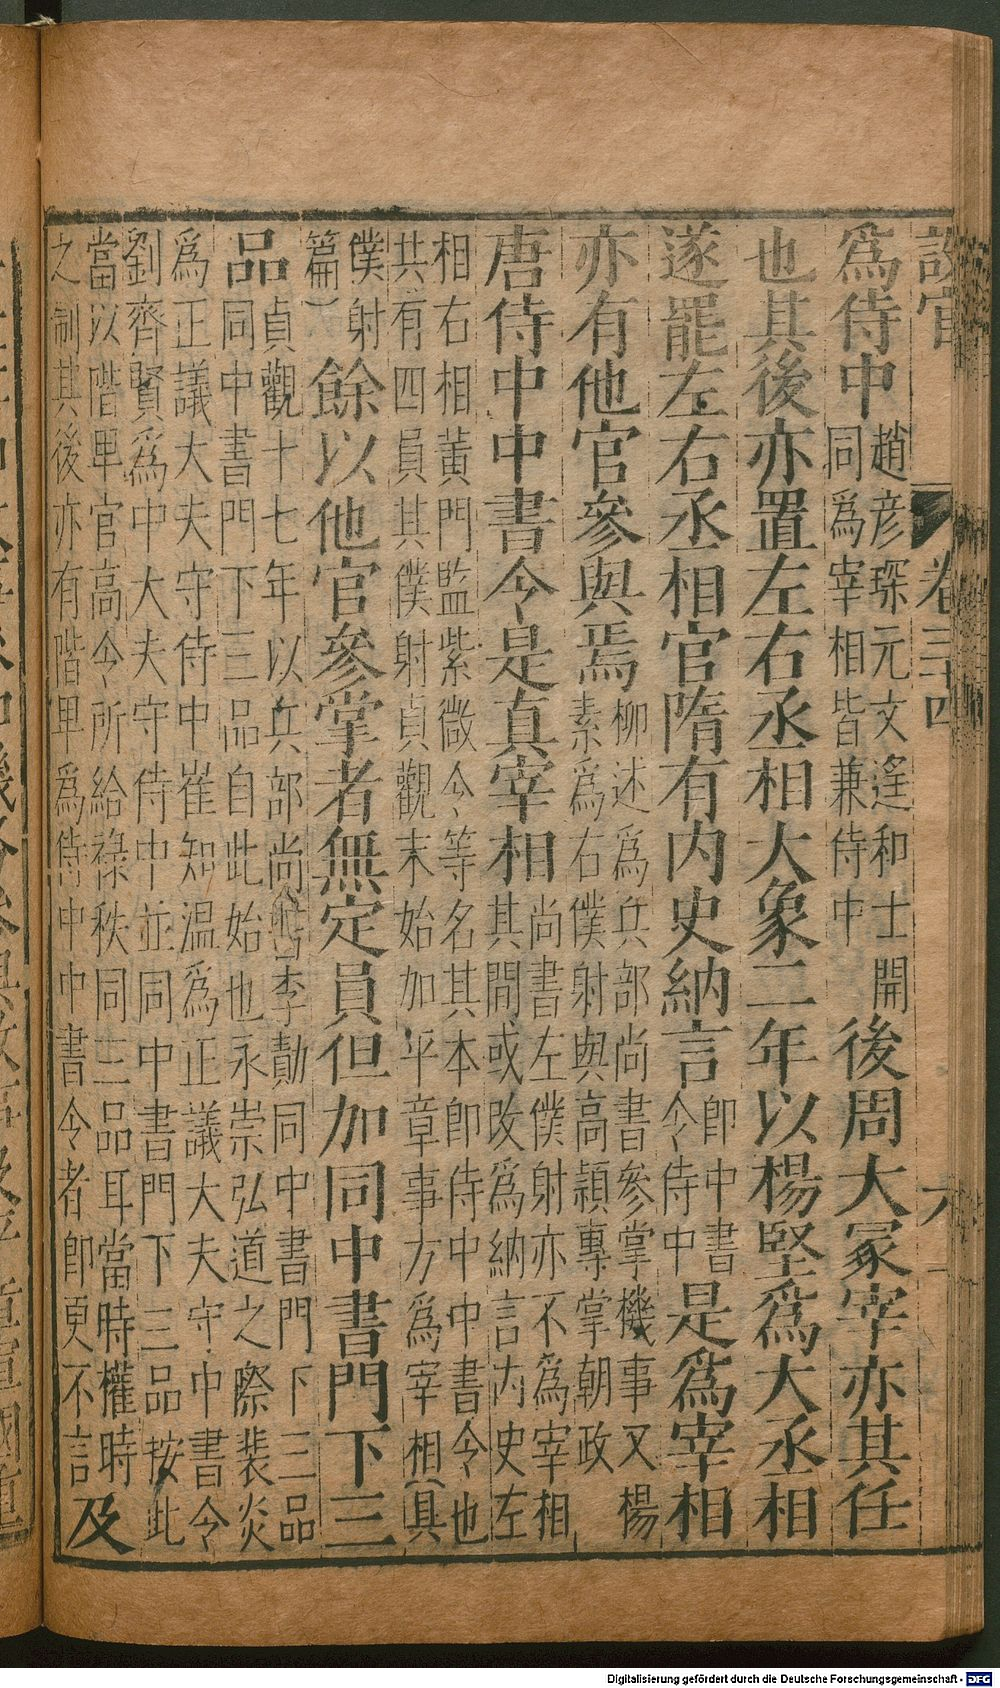 設官 卷三十四 六
爲侍中趙彦琛元文遥和士開同爲宰相皆兼侍中後周大冢宰亦其任
也其後亦置左右丞相大象二年以楊堅爲大丞相
遂罷左右丞相官隋有内史納言即中書令侍中是爲宰相
亦有他官參與焉柳述爲兵部尚書參掌機事又楊素爲右僕射與高熲專掌朝政
唐侍中中書令是真宰相尚書左僕射亦不爲宰相其間或改爲納言内史左
相右相黃門監紫微令等名其本即侍中中書令也共有四員其僕射貞觀末始加平章事方爲宰相(具
僕射篇)餘以他官參掌者無定員但加同中書門下三
品貞觀十七年以兵部尚書李勣同中書門下三品同中書門下三品自此始也永崇弘道之際裴炎
爲正議大夫守侍中崔知温爲正議大夫守中書令劉齊賢爲中大夫守侍中並同中書門下三品按此
當以階卑官高令所給祿秩同三品耳當時權時之制其後亦有階卑爲侍中中書令者即更不言及
Digitalisierung gefördert durch die Deutsche Forschungsgemeinschaft - DFG